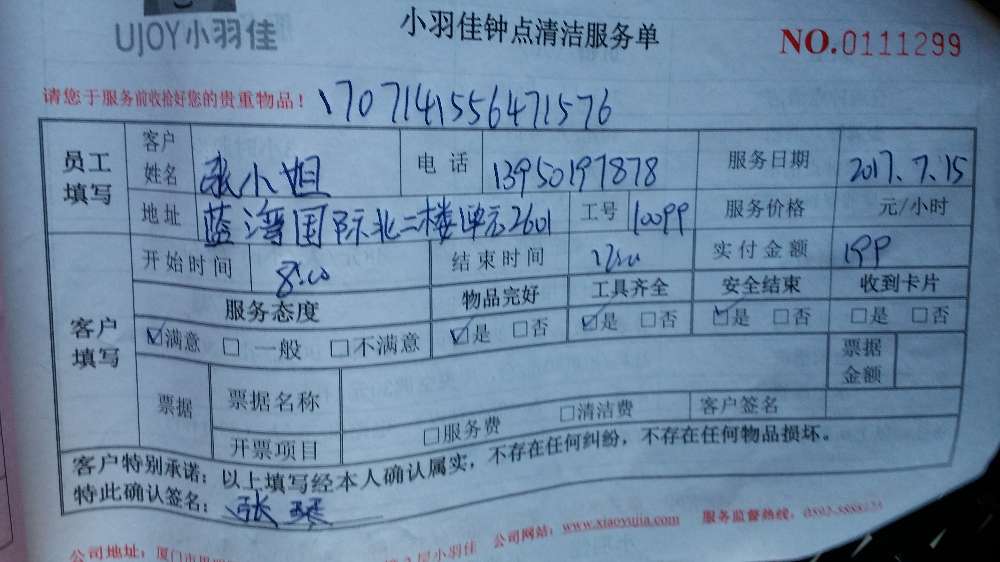 UJOY小羽佳 小羽佳钟点清洁服务单 NO.0111299
请您于服务前收拾好您的贵重物品! 1707141556471576
员工填写 客户姓名 张小姐 电话 13950197878 服务日期 2017.7.15
地址 蓝湾国际北二楼1单元2601 工号 10099 服务价格 元/小时
客户填写 开始时间 8:00 结束时间 12:00 实付金额 199
服务态度 物品完好 工具齐全 安全结束 收到卡片
☑满意 □一般 □不满意 ☑是 □否 ☑是 □否 ☑是 □否 □是 □否
票据 票据名称 票据金额
开票项目 □服务费 □清洁费 客户签名
客户特别承诺:以上填写经本人确认属实,不存在任何纠纷,不存在任何物品损坏。
特此确认签名: 张琴
公司地址:厦门市 小羽佳 公司网站:www.xiaoyujia.com 服务监督热线:0592-